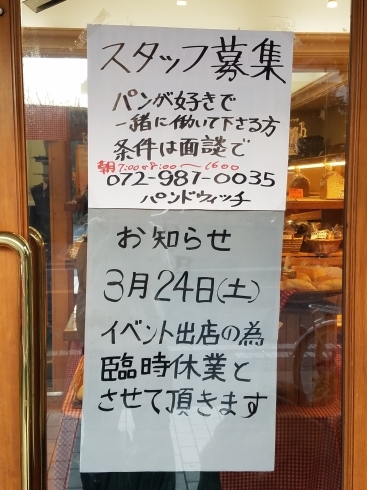 スタッフ募集
パンが好きで
一緒に働いて下さる方
条件は面談で
朝7:00or8:00〜1600
072-987-0035
パンドウィッチ
お知らせ
3月24日(土)
イベント出店の為
臨時休業と
させて頂きます